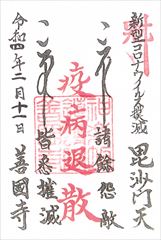 新型コロナウイルス撲滅
毘沙門天
諸餘怨敵
疫病退散
皆悉摧滅
善國寺
令和四年二月十一日